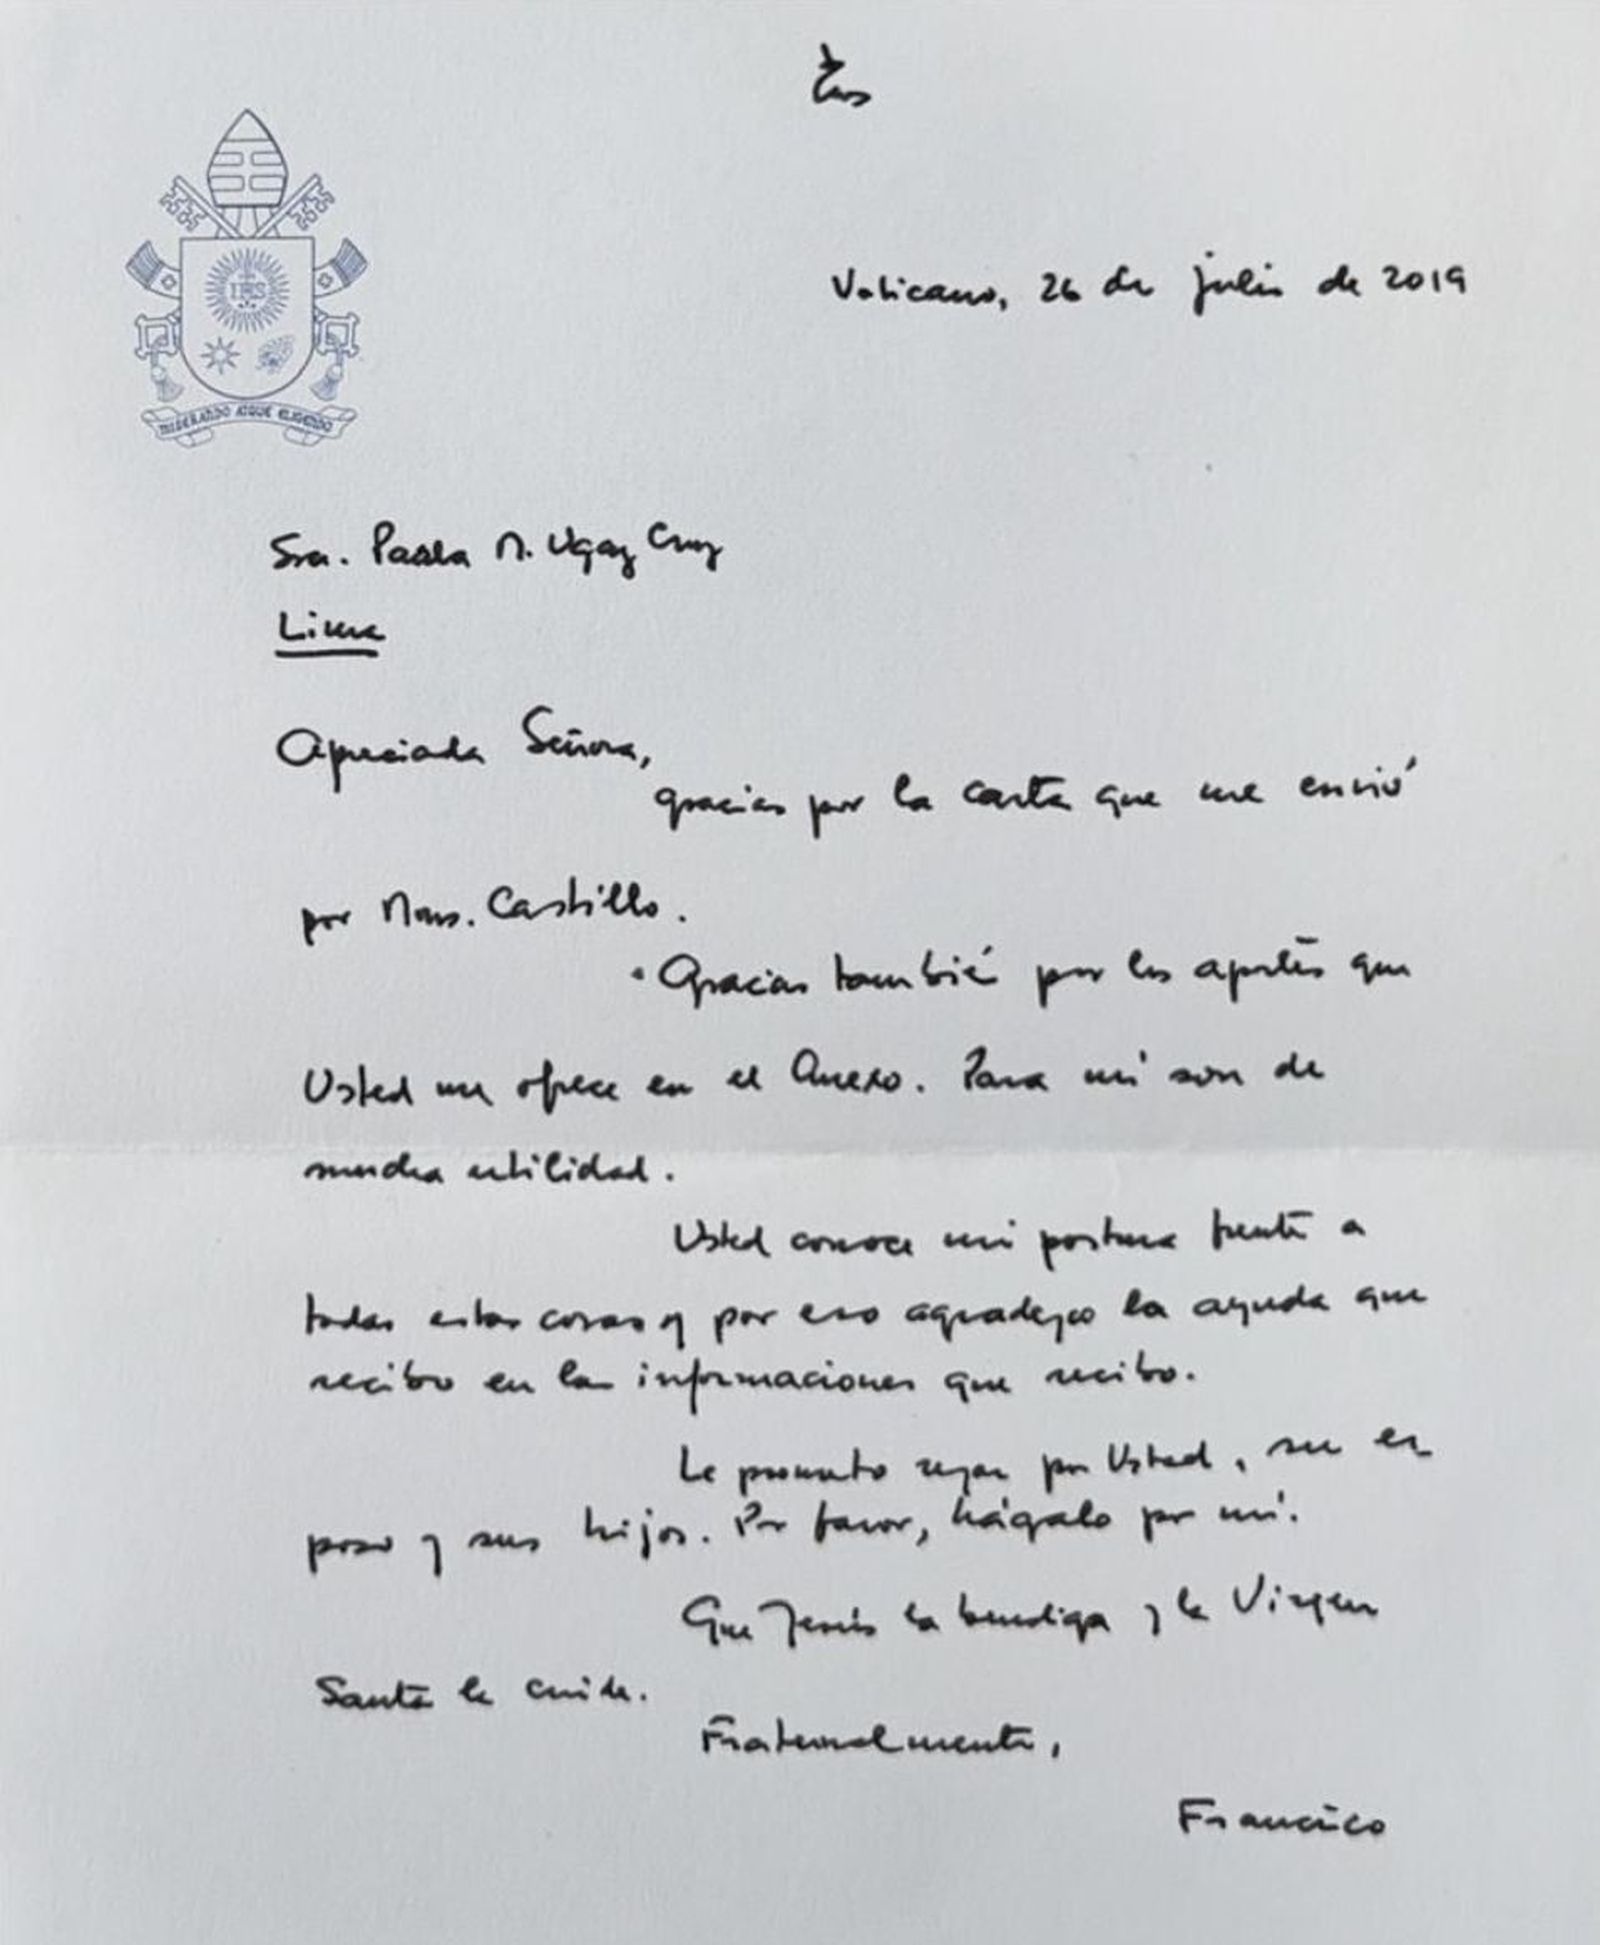 IHS
MISERANDO ATQUE ELIGENDO
Vaticano, 26 de julio de 2019
Sra. Paola M. Ugaz Cruz
Lima
Apreciada Señora,
gracias por la carta que me envió
por Mons. Castillo.
Gracias también por los aportes que
Usted me ofrece en el Anexo. Para mí son de
mucha utilidad.
Usted conoce mi postura frente a
todas estas cosas y por eso agradezco la ayuda que
recibo en las informaciones que recibo.
Le prometo rezar por Usted, su es
poso y sus hijos. Por favor, hágalo por mí.
Que Jesús la bendiga y la Virgen
Santa la cuide.
Fraternalmente,
Francisco